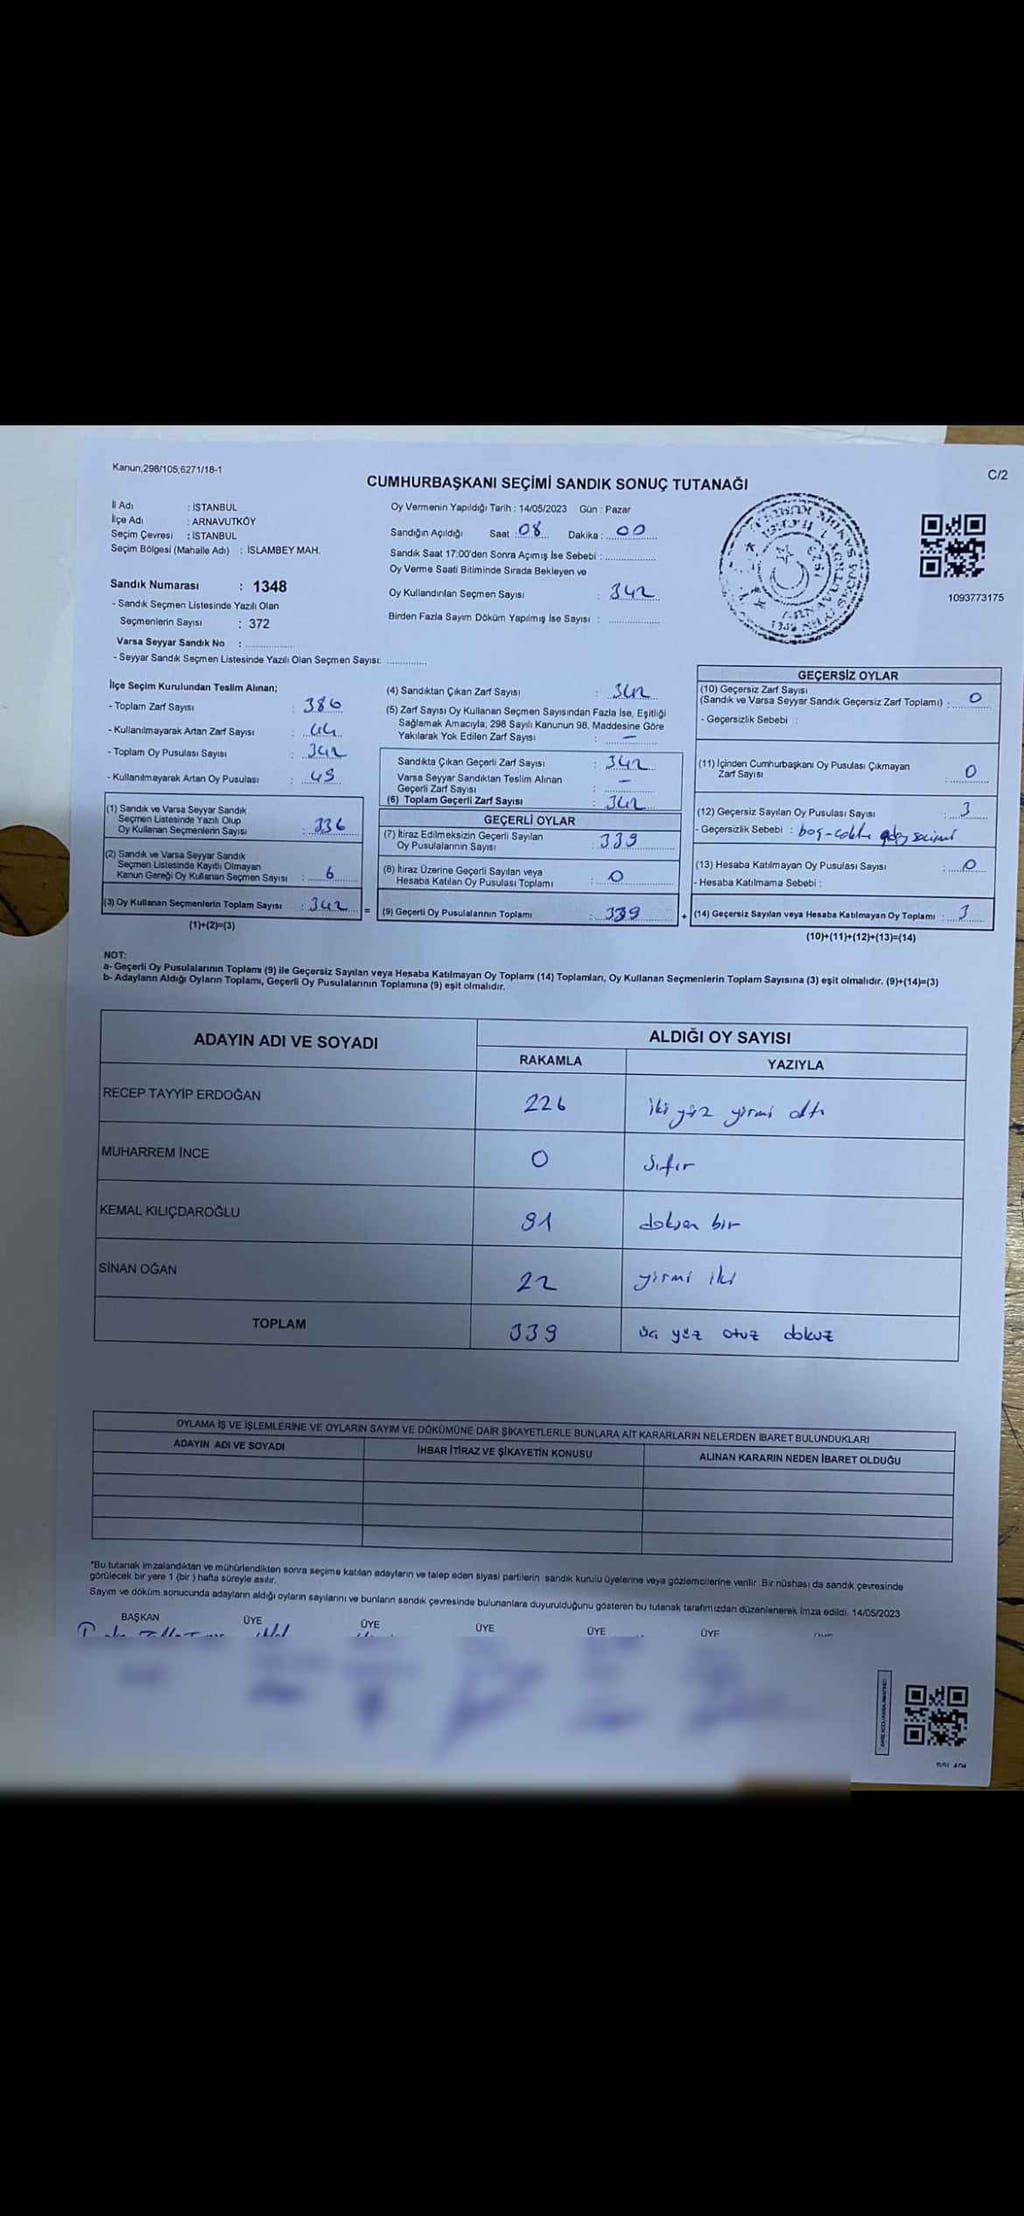 Kanun;298/105;6271/18-1
C/2
CUMHURBAŞKANI SEÇİMİ SANDIK SONUÇ TUTANAĞI
İl Adı : İSTANBUL
İlçe Adı : ARNAVUTKÖY
Seçim Çevresi : İSTANBUL
Seçim Bölgesi (Mahalle Adı) : İSLAMBEY MAH.
Sandık Numarası : 1348
- Sandık Seçmen Listesinde Yazılı Olan
Seçmenlerin Sayısı : 372
Varsa Seyyar Sandık No :
- Seyyar Sandık Seçmen Listesinde Yazılı Olan Seçmen Sayısı:
Oy Vermenin Yapıldığı Tarih : 14/05/2023 Gün : Pazar
Sandığın Açıldığı Saat : 08 Dakika : 00
Sandık Saat 17:00'den Sonra Açımış İse Sebebi :
Oy Verme Saati Bitiminde Sırada Bekleyen ve
Oy Kullandırılan Seçmen Sayısı : 342
Birden Fazla Sayım Döküm Yapılmış İse Sayısı :
1093773175
İlçe Seçim Kurulundan Teslim Alınan;
- Toplam Zarf Sayısı : 386
- Kullanılmayarak Artan Zarf Sayısı : 44
- Toplam Oy Pusulası Sayısı : 342
- Kullanılmayarak Artan Oy Pusulası : 45
(1) Sandık ve Varsa Seyyar Sandık
Seçmen Listesinde Yazılı Olup
Oy Kullanan Seçmenlerin Sayısı : 336
(2) Sandık ve Varsa Seyyar Sandık
Seçmen Listesinde Kayıtlı Olmayan
Kanun Gereği Oy Kullanan Seçmen Sayısı : 6
(3) Oy Kullanan Seçmenlerin Toplam Sayısı : 342 =
(1)+(2)=(3)
(4) Sandıktan Çıkan Zarf Sayısı : 342
(5) Zarf Sayısı Oy Kullanan Seçmen Sayısından Fazla İse, Eşitliği
Sağlamak Amacıyla; 298 Sayılı Kanunun 98. Maddesine Göre
Yakılarak Yok Edilen Zarf Sayısı : –
Sandıkta Çıkan Geçerli Zarf Sayısı : 342
Varsa Seyyar Sandıktan Teslim Alınan
Geçerli Zarf Sayısı : –
(6) Toplam Geçerli Zarf Sayısı : 342
GEÇERLİ OYLAR
(7) İtiraz Edilmeksizin Geçerli Sayılan
Oy Pusulalarının Sayısı 339
(8) İtiraz Üzerine Geçerli Sayılan veya
Hesaba Katılan Oy Pusulası Toplamı : 0
(9) Geçerli Oy Pusulalarının Toplamı : 339 +
GEÇERSİZ OYLAR
(10) Geçersiz Zarf Sayısı
(Sandık ve Varsa Seyyar Sandık Geçersiz Zarf Toplamı) : 0
- Geçersizlik Sebebi :
(11) İçinden Cumhurbaşkanı Oy Pusulası Çıkmayan
Zarf Sayısı : 0
(12) Geçersiz Sayılan Oy Pusulası Sayısı : 3
- Geçersizlik Sebebi : boş-
(13) Hesaba Katılmayan Oy Pusulası Sayısı : 0
- Hesaba Katılmama Sebebi :
(14) Geçersiz Sayılan veya Hesaba Katılmayan Oy Toplamı : 3
(10)+(11)+(12)+(13)=(14)
NOT:
a- Geçerli Oy Pusulalarının Toplamı (9) ile Geçersiz Sayılan veya Hesaba Katılmayan Oy Toplamı (14) Toplamları, Oy Kullanan Seçmenlerin Toplam Sayısına (3) eşit olmalıdır. (9)+(14)=(3)
b- Adayların Aldığı Oyların Toplamı, Geçerli Oy Pusulalarının Toplamına (9) eşit olmalıdır.
ADAYIN ADI VE SOYADI
ALDIĞI OY SAYISI
RAKAMLA YAZIYLA
RECEP TAYYİP ERDOĞAN 226 iki yüz yirmi altı
MUHARREM İNCE 0 Sıfır
KEMAL KILIÇDAROĞLU 91 doksan bir
SİNAN OĞAN 22 yirmi iki
TOPLAM 339 üç yüz otuz dokuz
OYLAMA İŞ VE İŞLEMLERİNE VE OYLARIN SAYIM VE DÖKÜMÜNE DAİR ŞİKAYETLERLE BUNLARA AİT KARARLARIN NELERDEN İBARET BULUNDUKLARI
ADAYIN ADI VE SOYADI İHBAR İTİRAZ VE ŞİKAYETİN KONUSU ALINAN KARARIN NEDEN İBARET OLDUĞU
*Bu tutanak imzalandıktan ve mühürlendikten sonra seçime katılan adayların ve talep eden siyasi partilerin sandık kurulu üyelerine veya gözlemcilerine verilir. Bir nüshası da sandık çevresinde
görülecek bir yere 1 (bir ) hafta süreyle asılır.
Sayım ve döküm sonucunda adayların aldığı oyların sayılarını ve bunların sandık çevresinde bulunanlara duyurulduğunu gösteren bu tutanak tarafımızdan düzenlenerek imza edildi. 14/05/2023
BAŞKAN ÜYE ÜYE ÜYE ÜYE ÜYE